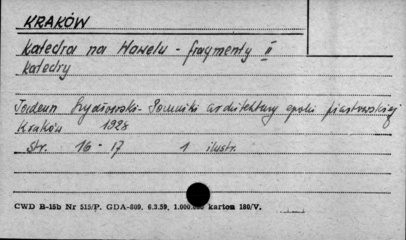 KRAKÓW
Katedra na Wawelu - fragmenty II
Katedry
Szydłowski - Pomniki architektury epoki piastowskiej
Kraków 1928
Str. 16 - 17 1 ilustr.
CWD B-15b Nr 515/P. GDA-809, 6.3.59, 1.000.000 karton 180/V.